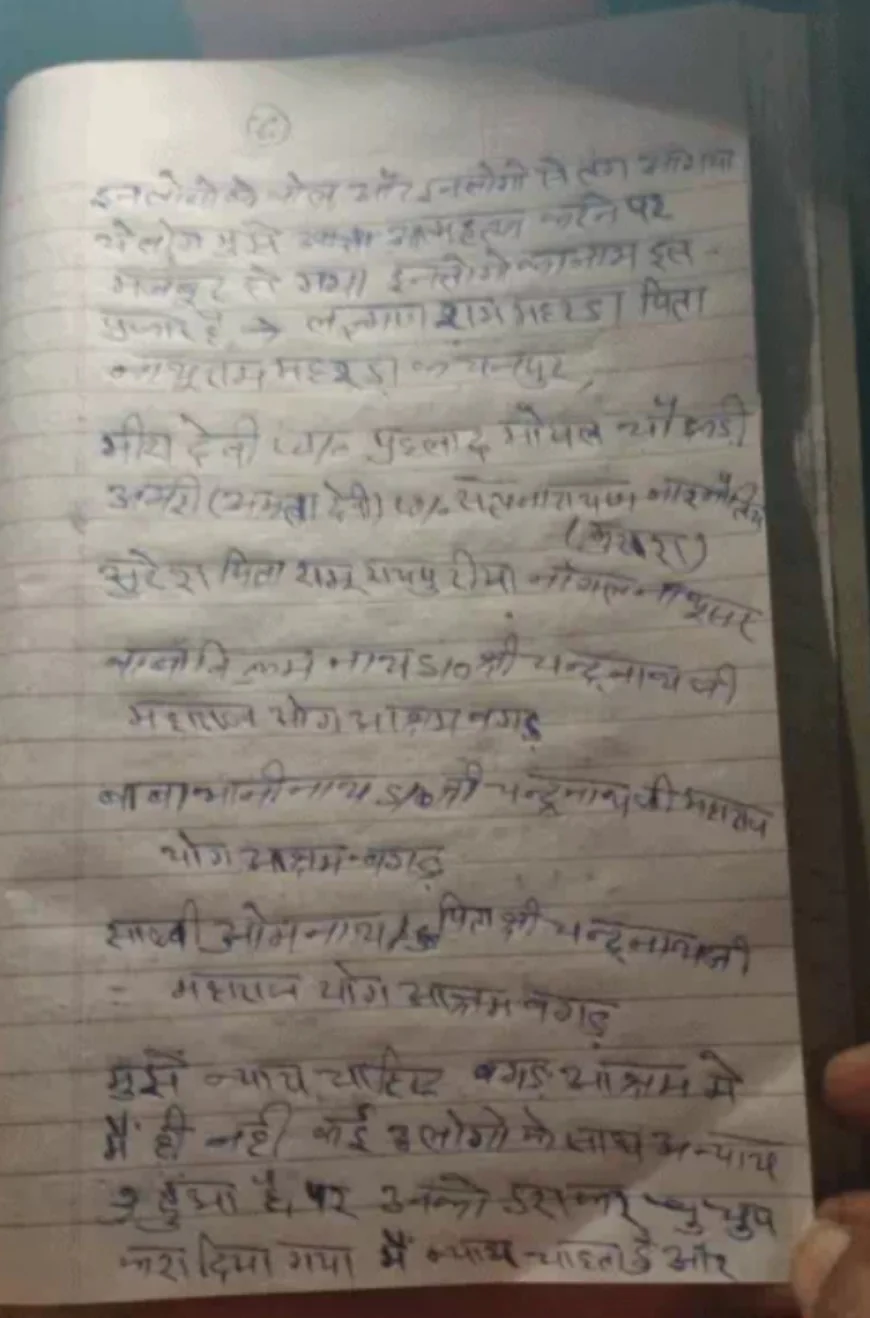 (6)
इनलोगो के बोल और इनलोगो से तंग आगया
येलोग मुझे आत्महत्या करने पर
मजबूर हो गया इनलोगो का नाम इस
प्रकार है → राम महरडा पिता
महरडा कंचनपुर,
मीरा देवी w/o प्रहलाद गोयल चौकड़ी
(ममता देवी) w/o सत्यनारायण
सुरेश पिता रामू रायपुरीया नांगल नाथूसर
बाबा नाथ S/o श्री चन्द्रनाथ जी
महाराज योग आश्रम बगड़
बाबा नाथ S/o श्री चन्द्रनाथ जी महाराज
योग आश्रम बगड़
साध्वी ओमनाथ पिता श्री चन्द्रनाथ जी
= महाराज योग आश्रम बगड़
मुझे न्याय चाहिए बगड़ आश्रम मे
मैं ही नही कई लोगो के साथ अन्याय
हुआ है, पर उनको डराकर चुप
करा दिया गया मैं न्याय चाहता हूँ और